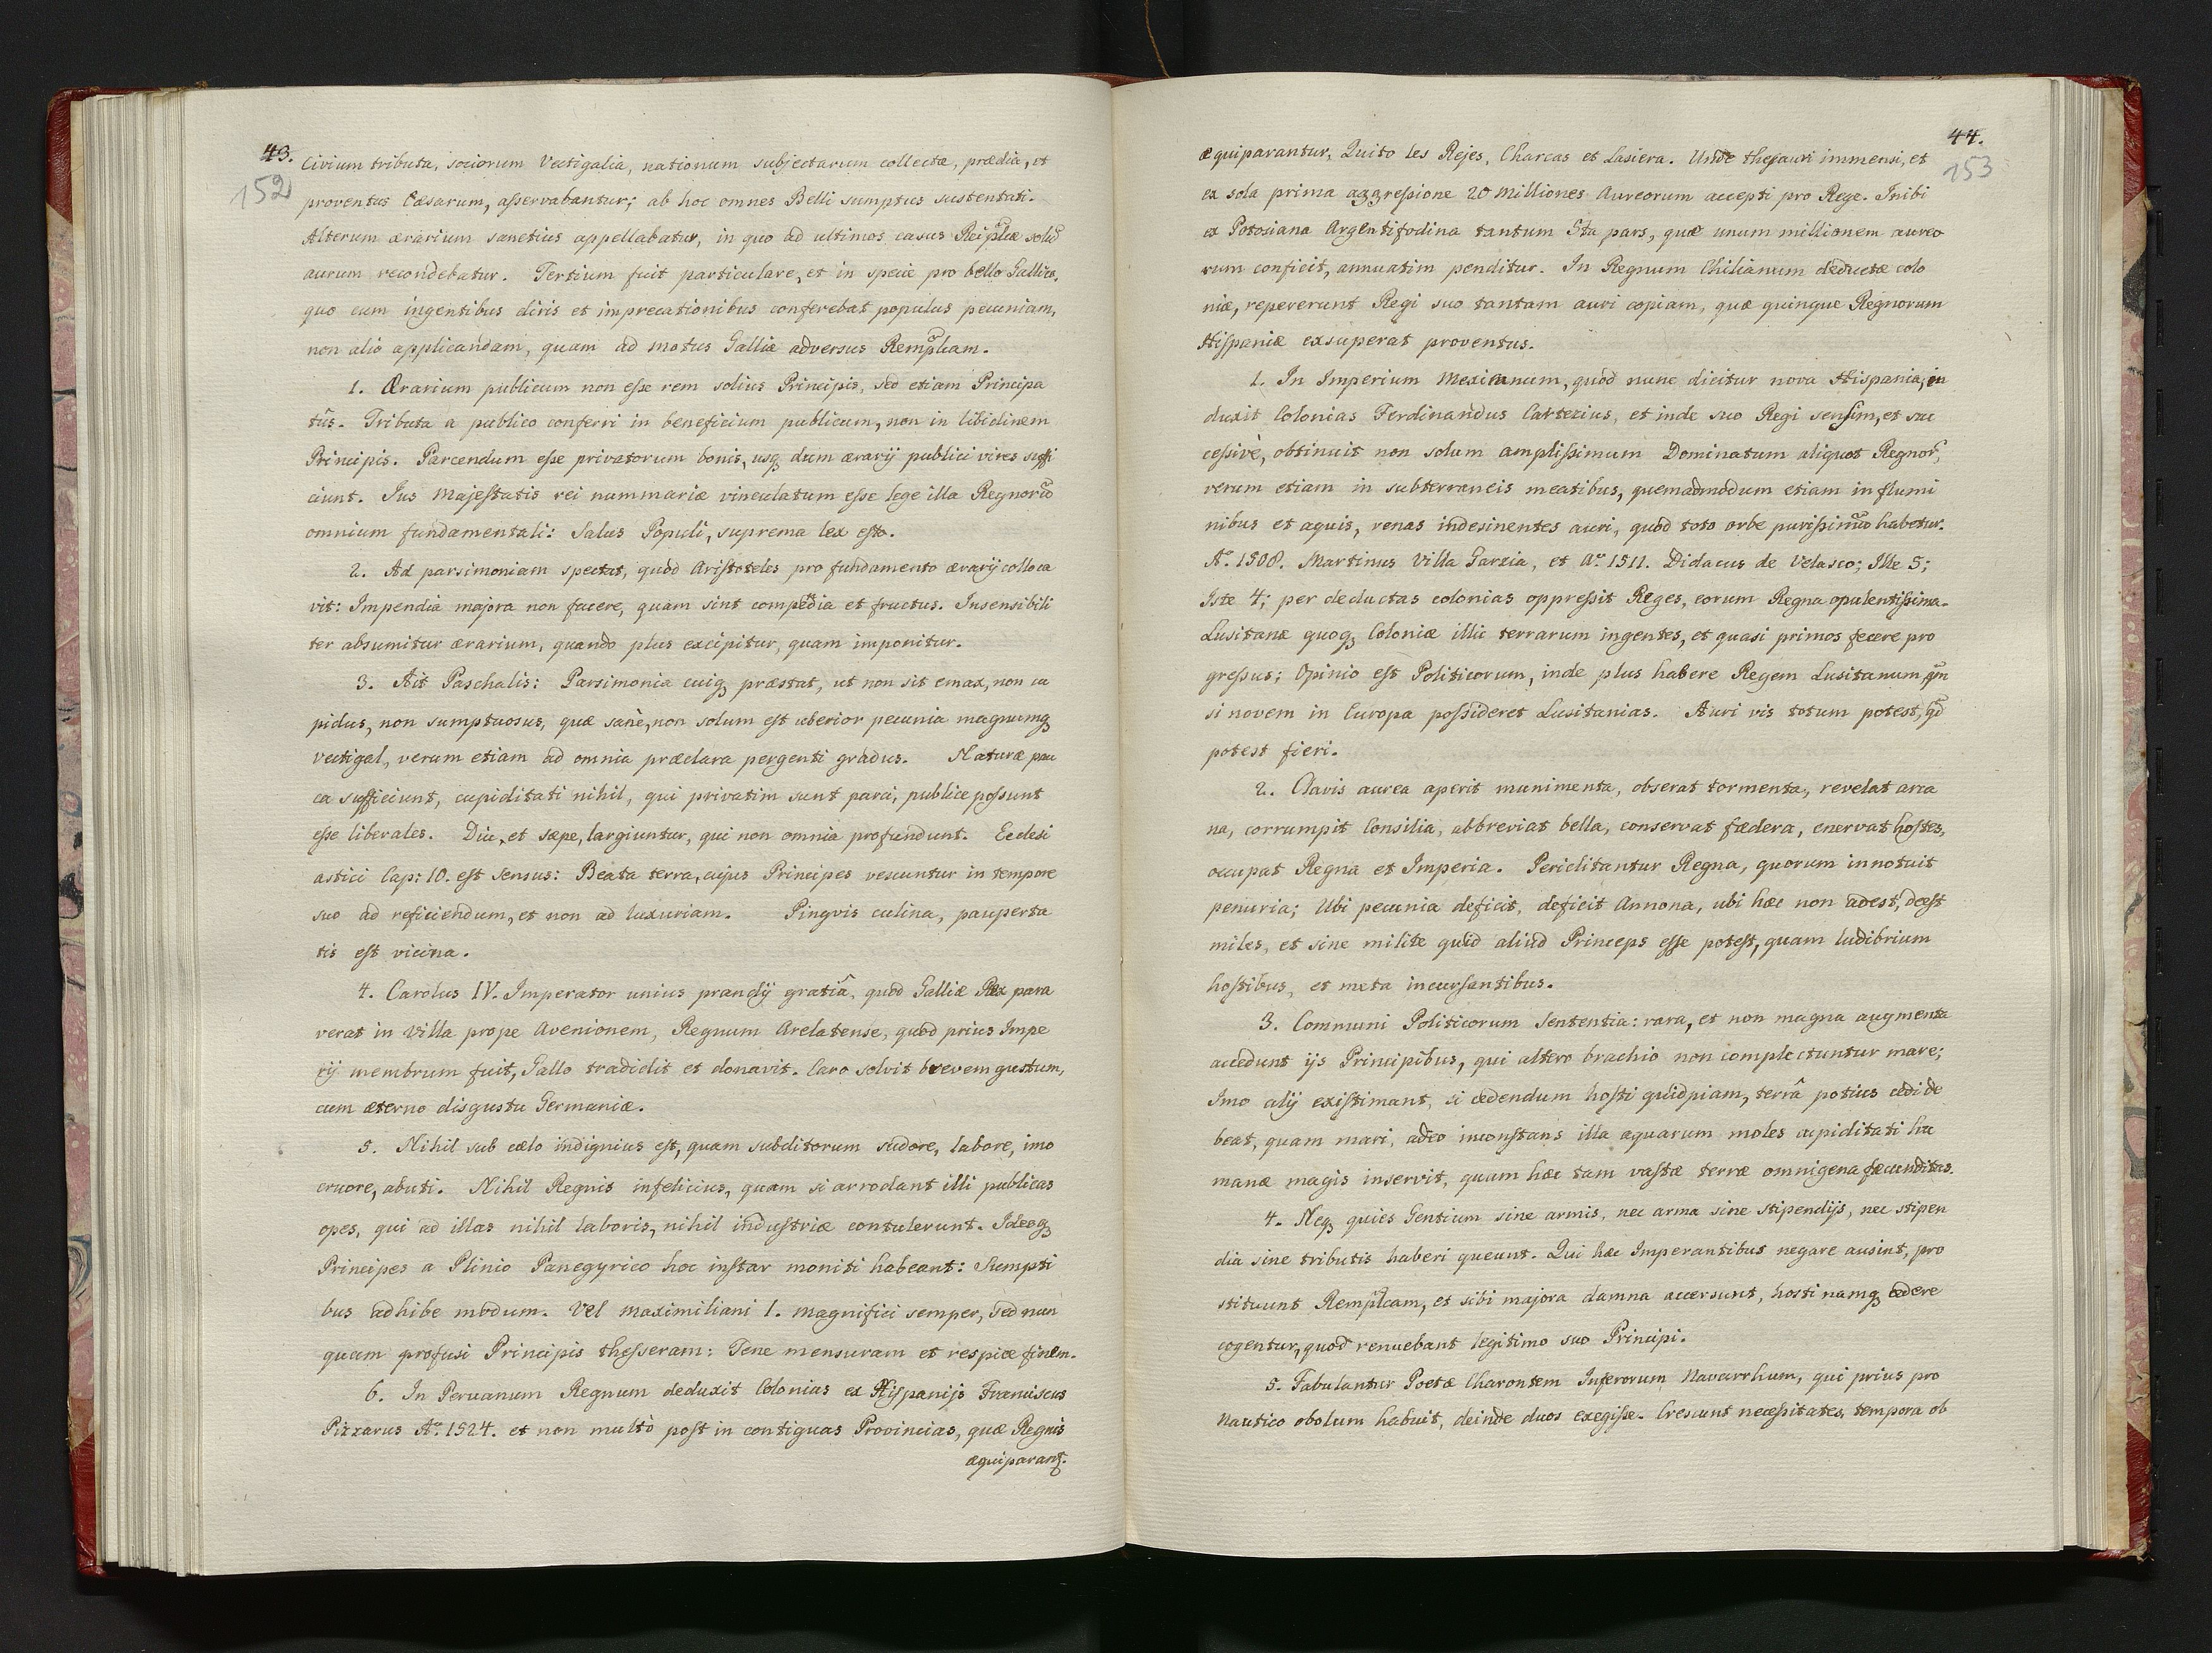 43.
152
Civium tributa, sociorum Vectigalia, nationum subjectarum collectæ, prædia, et
proventus Cæsarum, aſservabantur; ab hoc omnes Belli sumptus sustentati.
Alterum ærarium sanctius appellabatur, in quo ad ultimos casus Reiplicæ solũ
aurum recondebatur. Tertium fuit particulare, et in specie pro bello Gallico,
quo cum ingentibus diris et imprecationibus conferebat populus pecuniam,
non alio applicandam, quam ad motus Galliæ adversus Remplicam.
1. Ærarium publicum non eſse rem solius Principis, sed etiam Principa
tûs. Tributa a publico conferri in beneficium publicum, non in libidinem
Principis. Parcendum eſse privatorum bonis, usq dum ærarij publici vires suffi
ciunt. Jus Majeſtatis rei nummariæ vinculatum eſse lege illa Regnorũ
omnium fundamentali: Salus Populi, suprema lex eſto.
2. Ad parsimoniam spectat, quod Ariſtoteles pro fundamento ærarij colloca
vit: Impendia majora non facere, quam sint compedia et fructus. Insensibili
ter absumitur ærarium, quando plus excipitur, quam imponitur.
3. Ait Paschalis: Parsimonia cuiq præstat, ut non sit emax, non cu
pidus, non sumptuosus, quæ sanè, non solum eſt uberior pecunia magnumq
vectigal, verum etiam ad omnia præclara pergenti gradus. Naturæ pau
ca sufficiunt, cupiditati nihil, qui privatim sunt parci, publice poſsunt
eſse liberales. Diu, et sæpe, largiuntur, qui non omnia profundunt. Eccleſi
astici Cap: 10. eſt sensus: Beata terra, cujus Principes vescuntur in tempore
suo ad reficiendum, et non ad luxuriam. Pingvis culina, pauperta
tis eſt vicina.
4. Carolus IV. Imperator unius prandij gratiâ, quod Galliæ Rex para
verat in Villa prope Avenionem, Regnum Arelatense, quod prius Impe
rij membrum fuit, Gallo tradidit et donavit. Caro solvit brevem gustum,
cum æterno disgustu Germaniæ.
5. Nihil sub cælo indignius eſt, quam subditorum sudore, labore, imo
cruore, abuti. Nihil Regnis infelicius, quam si arrodant illi publicas
opes, qui ad illas nihil laboris, nihil induſtriæ contulerunt. Ideoq
Principes a Plinio Panegyrico hoc inſtar moniti habeant: Sumpti
bus adhibe modum. Vel Maximiliani I. magnifici semper, sed nun
quam profusi Principis theſseram: Tene mensuram et respice finem.
6. In Peruanum Regnum deduxit Colonias ex Hiſpanijs Franciscus
Pizzarus Aº. 1524. et non multò poſt in contiguas Provincias, quæ Regnis
æquiparant.
44.
153
æquiparantur, Quito les Rejes, Charcas et Lasiera. Unde theſauri immensi, et
ex sola prima aggreſsione 20 Milliones Aureorum accepti pro Rege. Inibi
ex Potosiana Argentifodina tantum 5ta pars, quæ unum millionem aureo
rum conficit, annuatim penditur. In Regnum Chilianum deductæ colo
niæ, repererunt Regi suo tantam auri copiam, quæ quinque Regnorum
Hiſpaniæ exsuperat proventus.
1. In Imperium Mexicanum, quod nunc dicitur nova Hispania, in
duxit Colonias Ferdinandus Cartezius, et inde suo Regi senſim, et suc
ceſsivè, obtinuit non solum ampliſsimum Dominatum aliquot Regnor,
verum etiam in subterraneis meatibus, quemadmodum etiam in flumi
nibus et aquis, venas indesinentes auri, quod toto orbe puriſsimũ habetur.
Aº. 1508. Martinus Villa Garzia, et Aº. 1511. Didacus de Velasco; Ille 5;
Iste 4; per deductas colonias oppreſsit Reges, eorum Regna opulentiſsima.
Lusitanæ quoq Coloniæ illic terrarum ingentes, et quasi primos fecere pro
greſsus; Opinio eſt Politicorum, inde plus habere Regem Lusitanum qm
si novem in Europa poſsideret Lusitanias. Auri vis totum potest, qd
potest fieri.
2. Clavis aurea aperit munimenta, obserat tormenta, revelat arca
na, corrumpit Consilia, abbreviat bella, conservat fædera, enervat hoſtes,
occupat Regna et Imperia. Periclitantur Regna, quorum innotuit
penuria; Ubi pecunia deficit, deficit Annona, ubi hæc non adest, deeſt
miles, et sine milite quid aliud Princeps eſſe poteſt, quam ludibrium
hoſtibus, et meta incurſantibus.
3. Communi Politicorum Sententia: rara, et non magna augmenta
accedunt ijs Principibus, qui altero brachio non complectuntur mare;
Imo alij exiſtimant, si cedendum hoſti quidpiam, terrâ potius cedi de
beat, quam mari, adeo inconſtans illa aquarum moles cupiditati hu
manæ magis inservit, quam hæc tam vaſtæ terræ omnigena fæcunditas.
4. Neq quies Gentium sine armis, nec arma sine stipendijs, nec stipen
dia sine tributis haberi queunt. Qui hæc Imperantibus negare ausint, pro
stituunt Remplicam, et sibi majora damna accersunt, hosti namq cedere
cogentur, quod renuebant legitimo suo Principi.
5. Fabulantur Poetæ Charontem Inferorum Navarrhum, qui prius pro
Nautico obolum habuit, deinde duos exegiſse. Crescunt neceſsitates, tempora ob